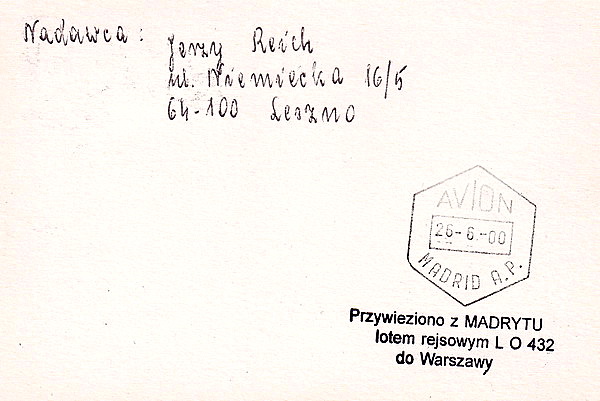 Nadawca: Jerzy Reich
ul. Niemiecka 16/5
64-100 Leszno
AVION
26-6.-00
MADRID A.P.
Przywieziono z MADRYTU
lotem rejsowym L O 432
do Warszawy